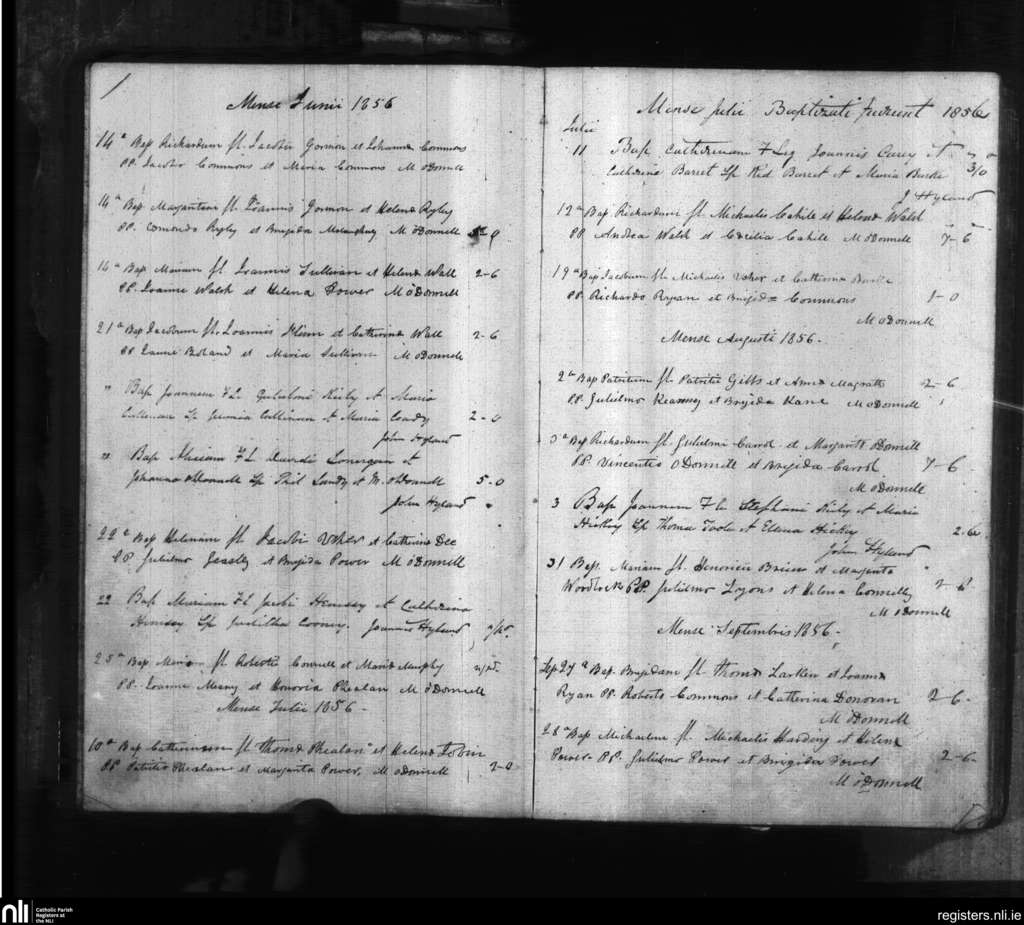 1
Mense Junii 1856
14ª Bap Richardum fl. Jacobi Gormon et Johanna Commons
PP. Jacobo Commons et Maria Commons M ODonnell
14ª Bap Margaritam fl. Joannis Gormon et Helena Rigley
PP. Edmondo Rigley et Brigida M ODonnell
14ª Bap Mariam fl. Joannis Sullivan et Helena Wall 2-6
PP. Joanne Walsh et Helena Power M ODonnell
21ª Bap Jacobum fl. Joannis et Catherina Wall 2-6
PP Boland et Maria Sullivan M ODonnell
" Bap Joannem F L Gulielmi Kiely et Maria
Sp Cullinan et Maria Coady 2-0
John Hyland
" Bap F L Lonergan et
Johanna ODonnell Sp Phil et M. ODonnell 5-0
John Hyland
22ª Bap Helenam fl. Jacobi Usher et Catherina Dee
PP. Gulielmo et Brigida Power M ODonnell
22 Bap Mariam Fl Jacobi Hennssy et Catherina
Hennssy Sp Juditha Cooney. Joannes Hyland
25ª Bap. fl. Roberti Connell et Maria Murphy
PP. Joanne et Honoria Phealan M ODonnell
Mense Julii 1856 -
10ª Bap Catherinam fl. Thoma Phealan et Helena Tobin
PP Patritio Phealan et Margarita Power, M ODonnell 2-0
Mense Julii Baptizati fuerunt 1856
Julii
11 Bap Catherinam F Leg Joannis Carey et
Catherina Barret Sp Rid Barret et Maria Burke 3/0
J Hyland
12ª Bap Richardum fl. Michaelis Cahill et Helena Walsh
PP. Andrea Walsh et Cecilia Cahill M ODonnell 7-6
19ª Bap Jacobum fl. Michaelis Usher et Catherina Burke
PP. Richardo Ryan et Brigida Commons 1-0
M ODonnell
Mense Augusti 1856 -
2ª Bap Patritium fl. Patritii Gibbs et Anna Magrath 2-6
PP. Gulielmo Kearney et Brigida Kane M ODonnell
3ª Bap Richardum fl. Gulielmi Carrol et Margarita ODonnell
PP. Vincentio ODonnell et Brigida Carrol 7-6
M ODonnell
3 Bap Joannem F L Stephani Kiely et Maria
Hickey Sp Thoma Toole et Elena Hickey 2.6
John Hyland
31 Bap. Mariam fl. Brien et Margarita
Woodlock PP. Gulielmo Lyons et Helena Connelly 2-6
M ODonnell
Mense Septembris 1856 -
Sep 27ª Bap. Brigidam fl. Thoma Larken et Joanna
Ryan PP. Roberto Commons et Catherina Donovan 2-6-
M ODonnell
28ª Bap Michaelem fl. Michaelis Harding et Helena
Power PP. Gulielmo Power et Brigida Power 2-6-
M ODonnell
nli
Catholic Parish
Registers at
the NLI
registers.nli.ie